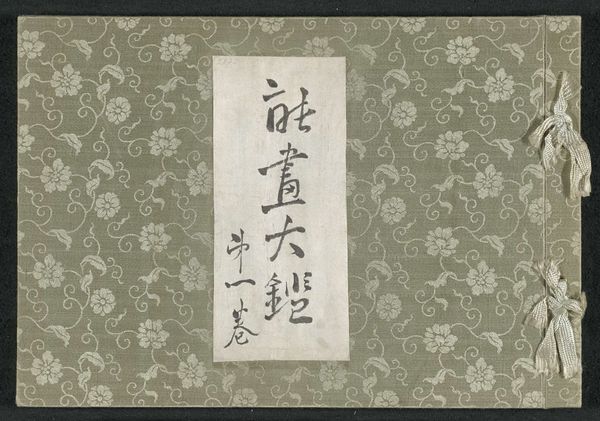 能畫大鑑
第一巻